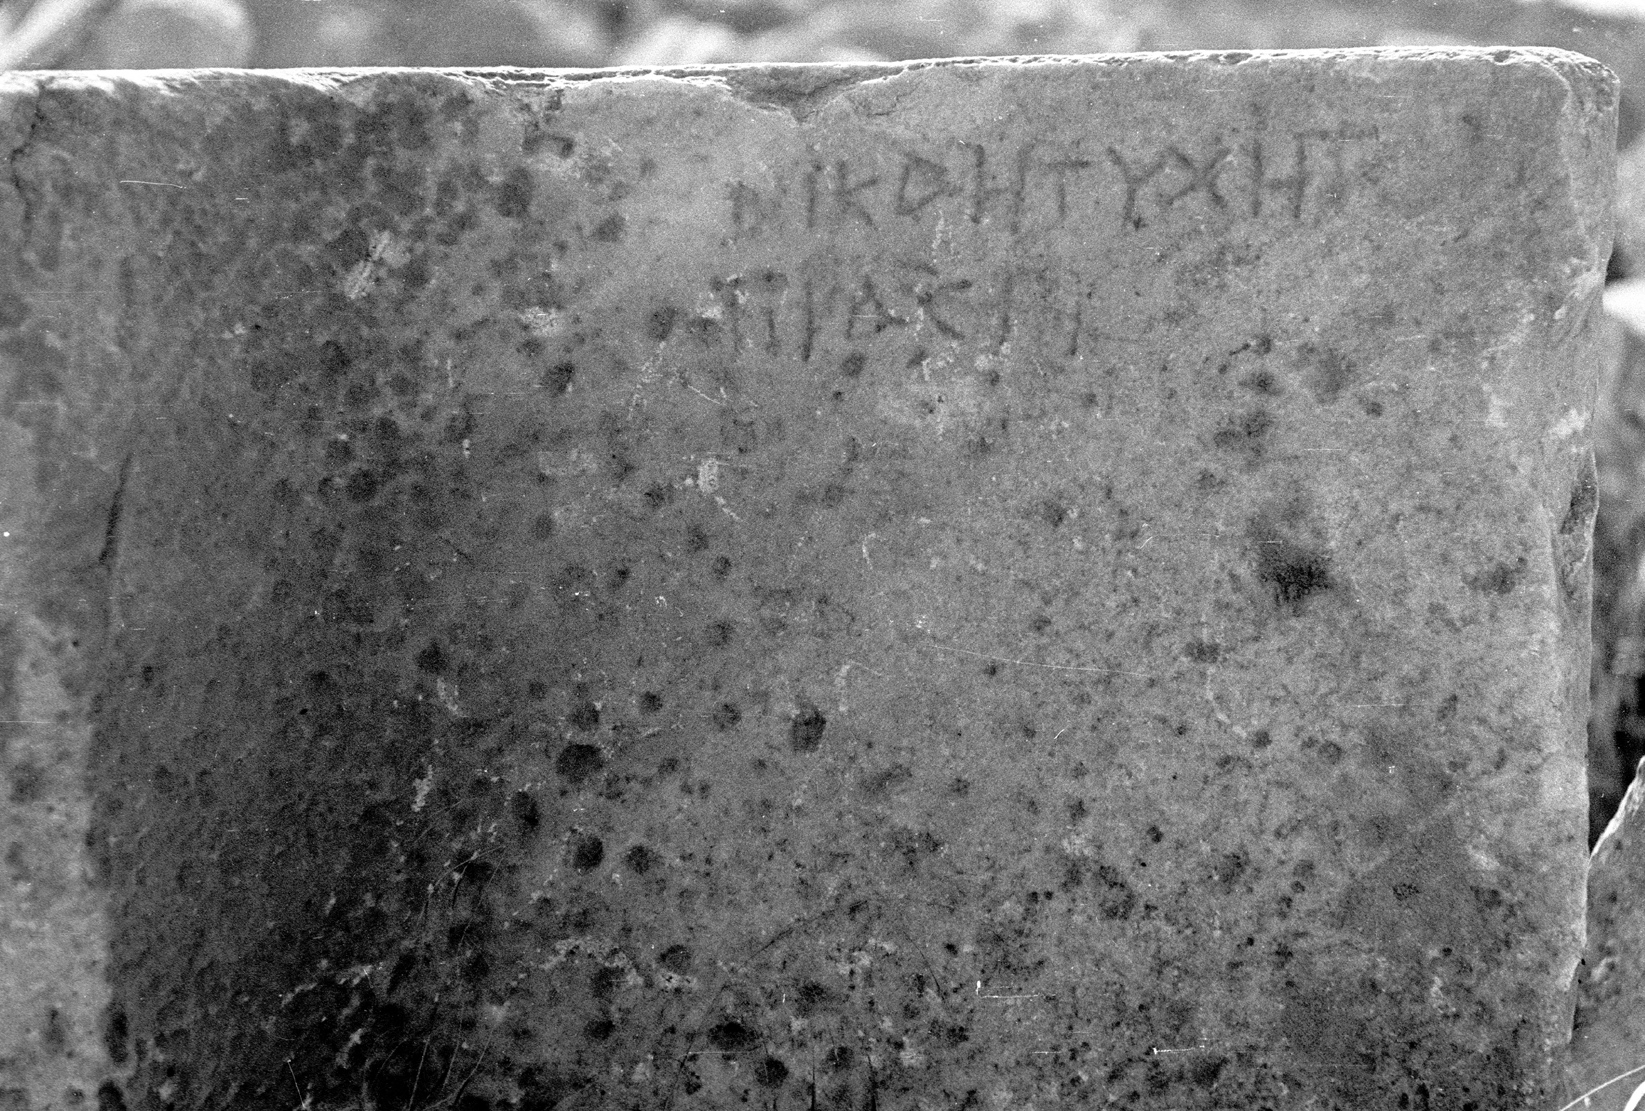 ΝΙΚΑΗΤΥΧΗΤ
ΠΡΑΣΙΝ